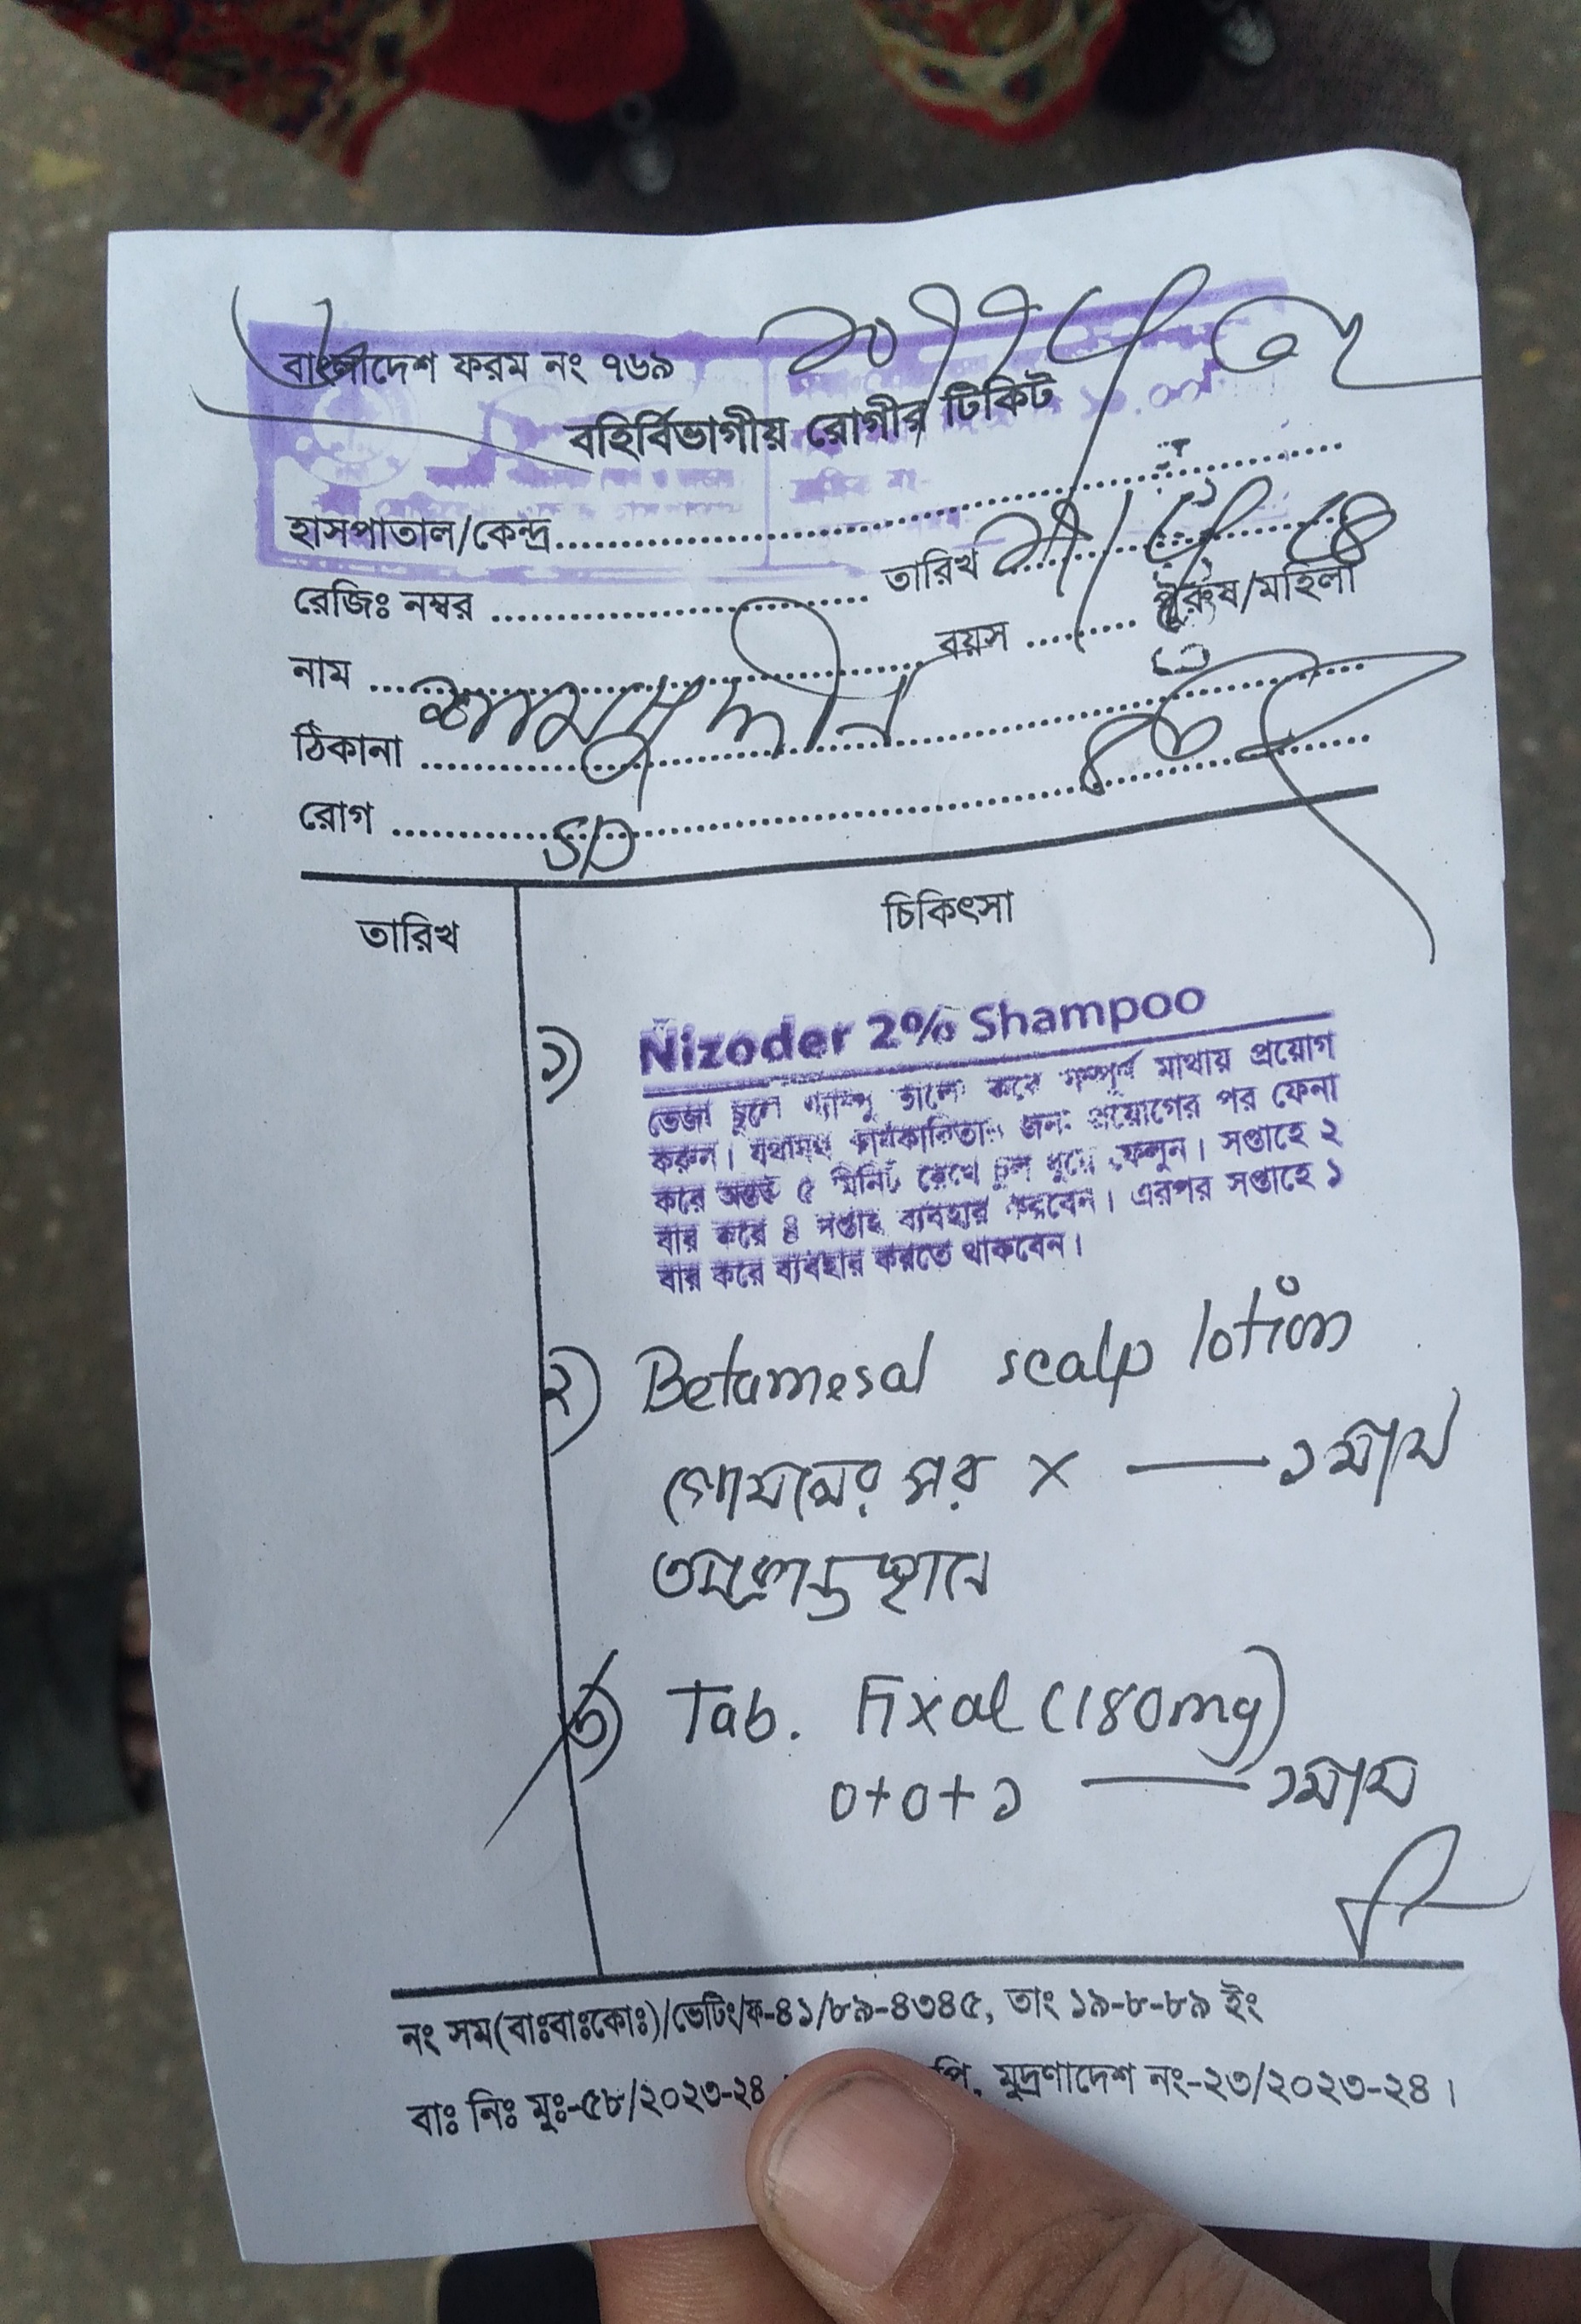 বাংলাদেশ ফরম নং ৭৬৯
বহির্বিভাগীয় রোগীর টিকিট
হাসপাতাল/কেন্দ্র
রেজিঃ নম্বর তারিখ
নাম বয়স পুরুষ/মহিলা
ঠিকানা
রোগ SD
তারিখ চিকিৎসা
১) Nizoder 2% Shampoo
ভেজা চুলে শ্যাম্পু ভালো করে সম্পূর্ণ মাথায় প্রয়োগ
করুন। যথাযথ কার্যকারিতার জন্য প্রয়োগের পর ফেনা
করে অন্তত ৫ মিনিট রেখে চুল ধুয়ে ফেলুন। সপ্তাহে ২
বার করে ৪ সপ্তাহ ব্যবহার করবেন। এরপর সপ্তাহে ১
বার করে ব্যবহার করতে থাকবেন।
২) Betamesal scalp lotion
গোসলের পর × — ১ মাস
আক্রান্ত স্থানে
৩) Tab. Fixal (180mg)
০+০+১ — ১মাস
নং সম(বাঃবাঃকোঃ)/ভেটিং/ফ-৪১/৮৯-৪৩৪৫, তাং ১৯-৮-৮৯ ইং
বাঃ নিঃ মুঃ-৫৮/২০২৩-২৪ পি, মুদ্রণাদেশ নং-২৩/২০২৩-২৪।